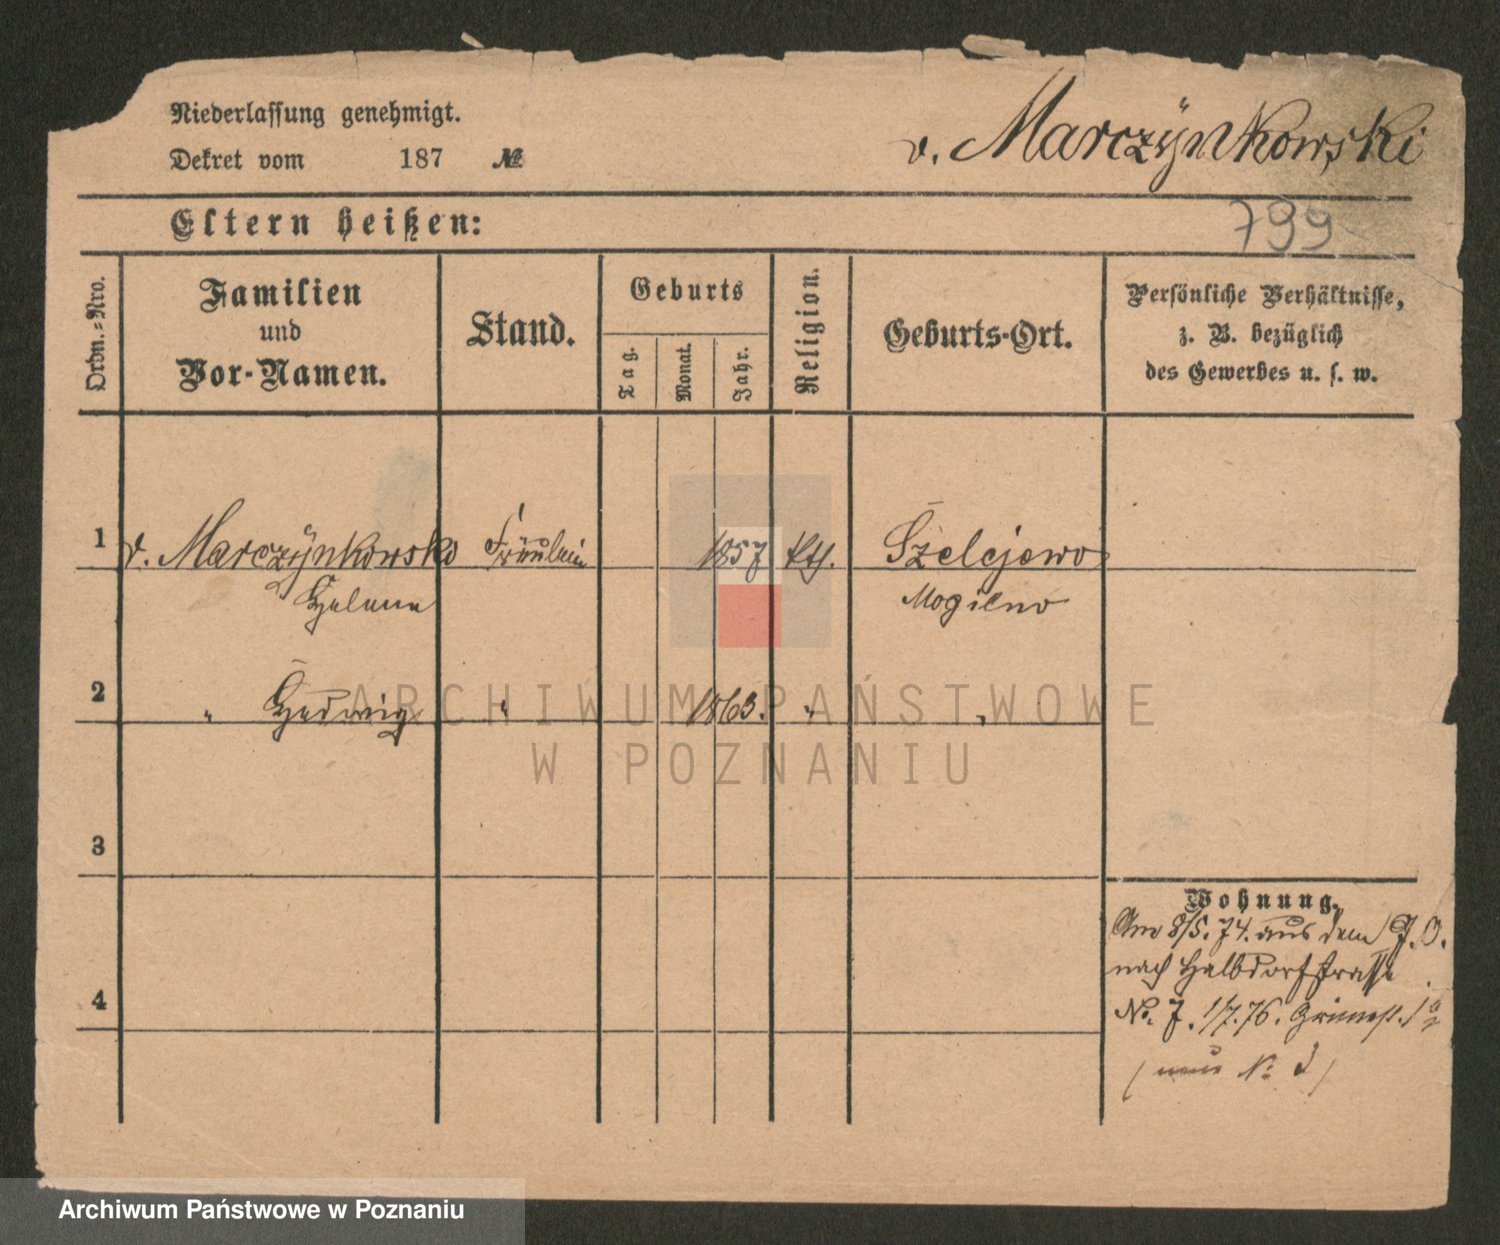 Niederlassung genehmigt.
v. Marczÿnkowski
Dekret vom 187 №
Eltern heißen:
799
Ordn.-Nro.
Familien
und
Vor-Namen.
Stand.
Geburts
Tag.
Monat.
Jahr.
Religion.
Geburts-Ort.
Persönliche Verhältnisse,
z. B. bezüglich
des Gewerbes u. s. w.
1 v. Marczÿnkowsko Fräulein 1857 kth. Szelejewo
Helene Mogilno
2 " Hedwig " 1863. " "
3
4
Wohnung.
Am 8/5. 74. aus dem J. O.
nach Halbdorfstrasse
No. 7. 1/7. 76. Grünest. 1
(neue №: 3)
ARCHIWUM PAŃSTWOWE
W POZNANIU
Archiwum Państwowe w Poznaniu